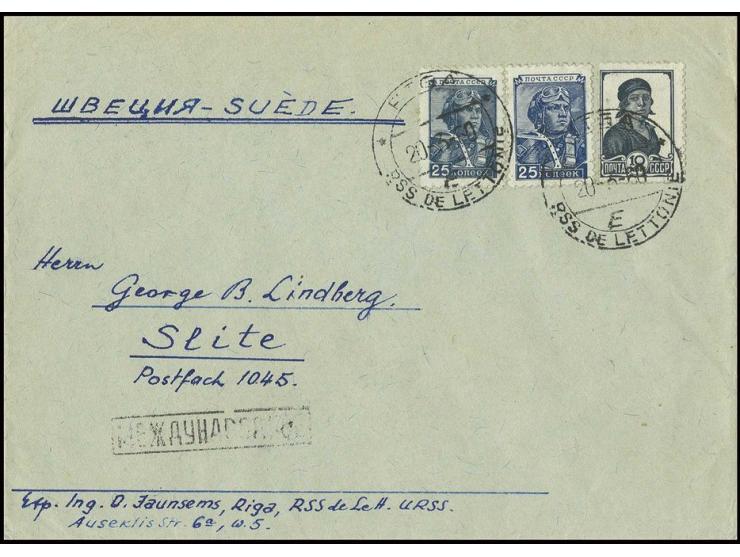 ШВЕЦИЯ-SUÈDE.
ПОЧТА СССР
25 КОПЕЕК
ПОЧТА СССР
25 КОПЕЕК
10
ПОЧТА СССР
RSS DE LETTONIE
E
RSS DE LETTONIE
E
Herrn
George B. Lindberg.
Slite
Postfach 1045.
МЕЖДУНАРОДНОЕ
Exp. Ing. D. Jaunsems, Riga, RSS de Lett. URSS.
Auseklis Str. 6a, w. 5.